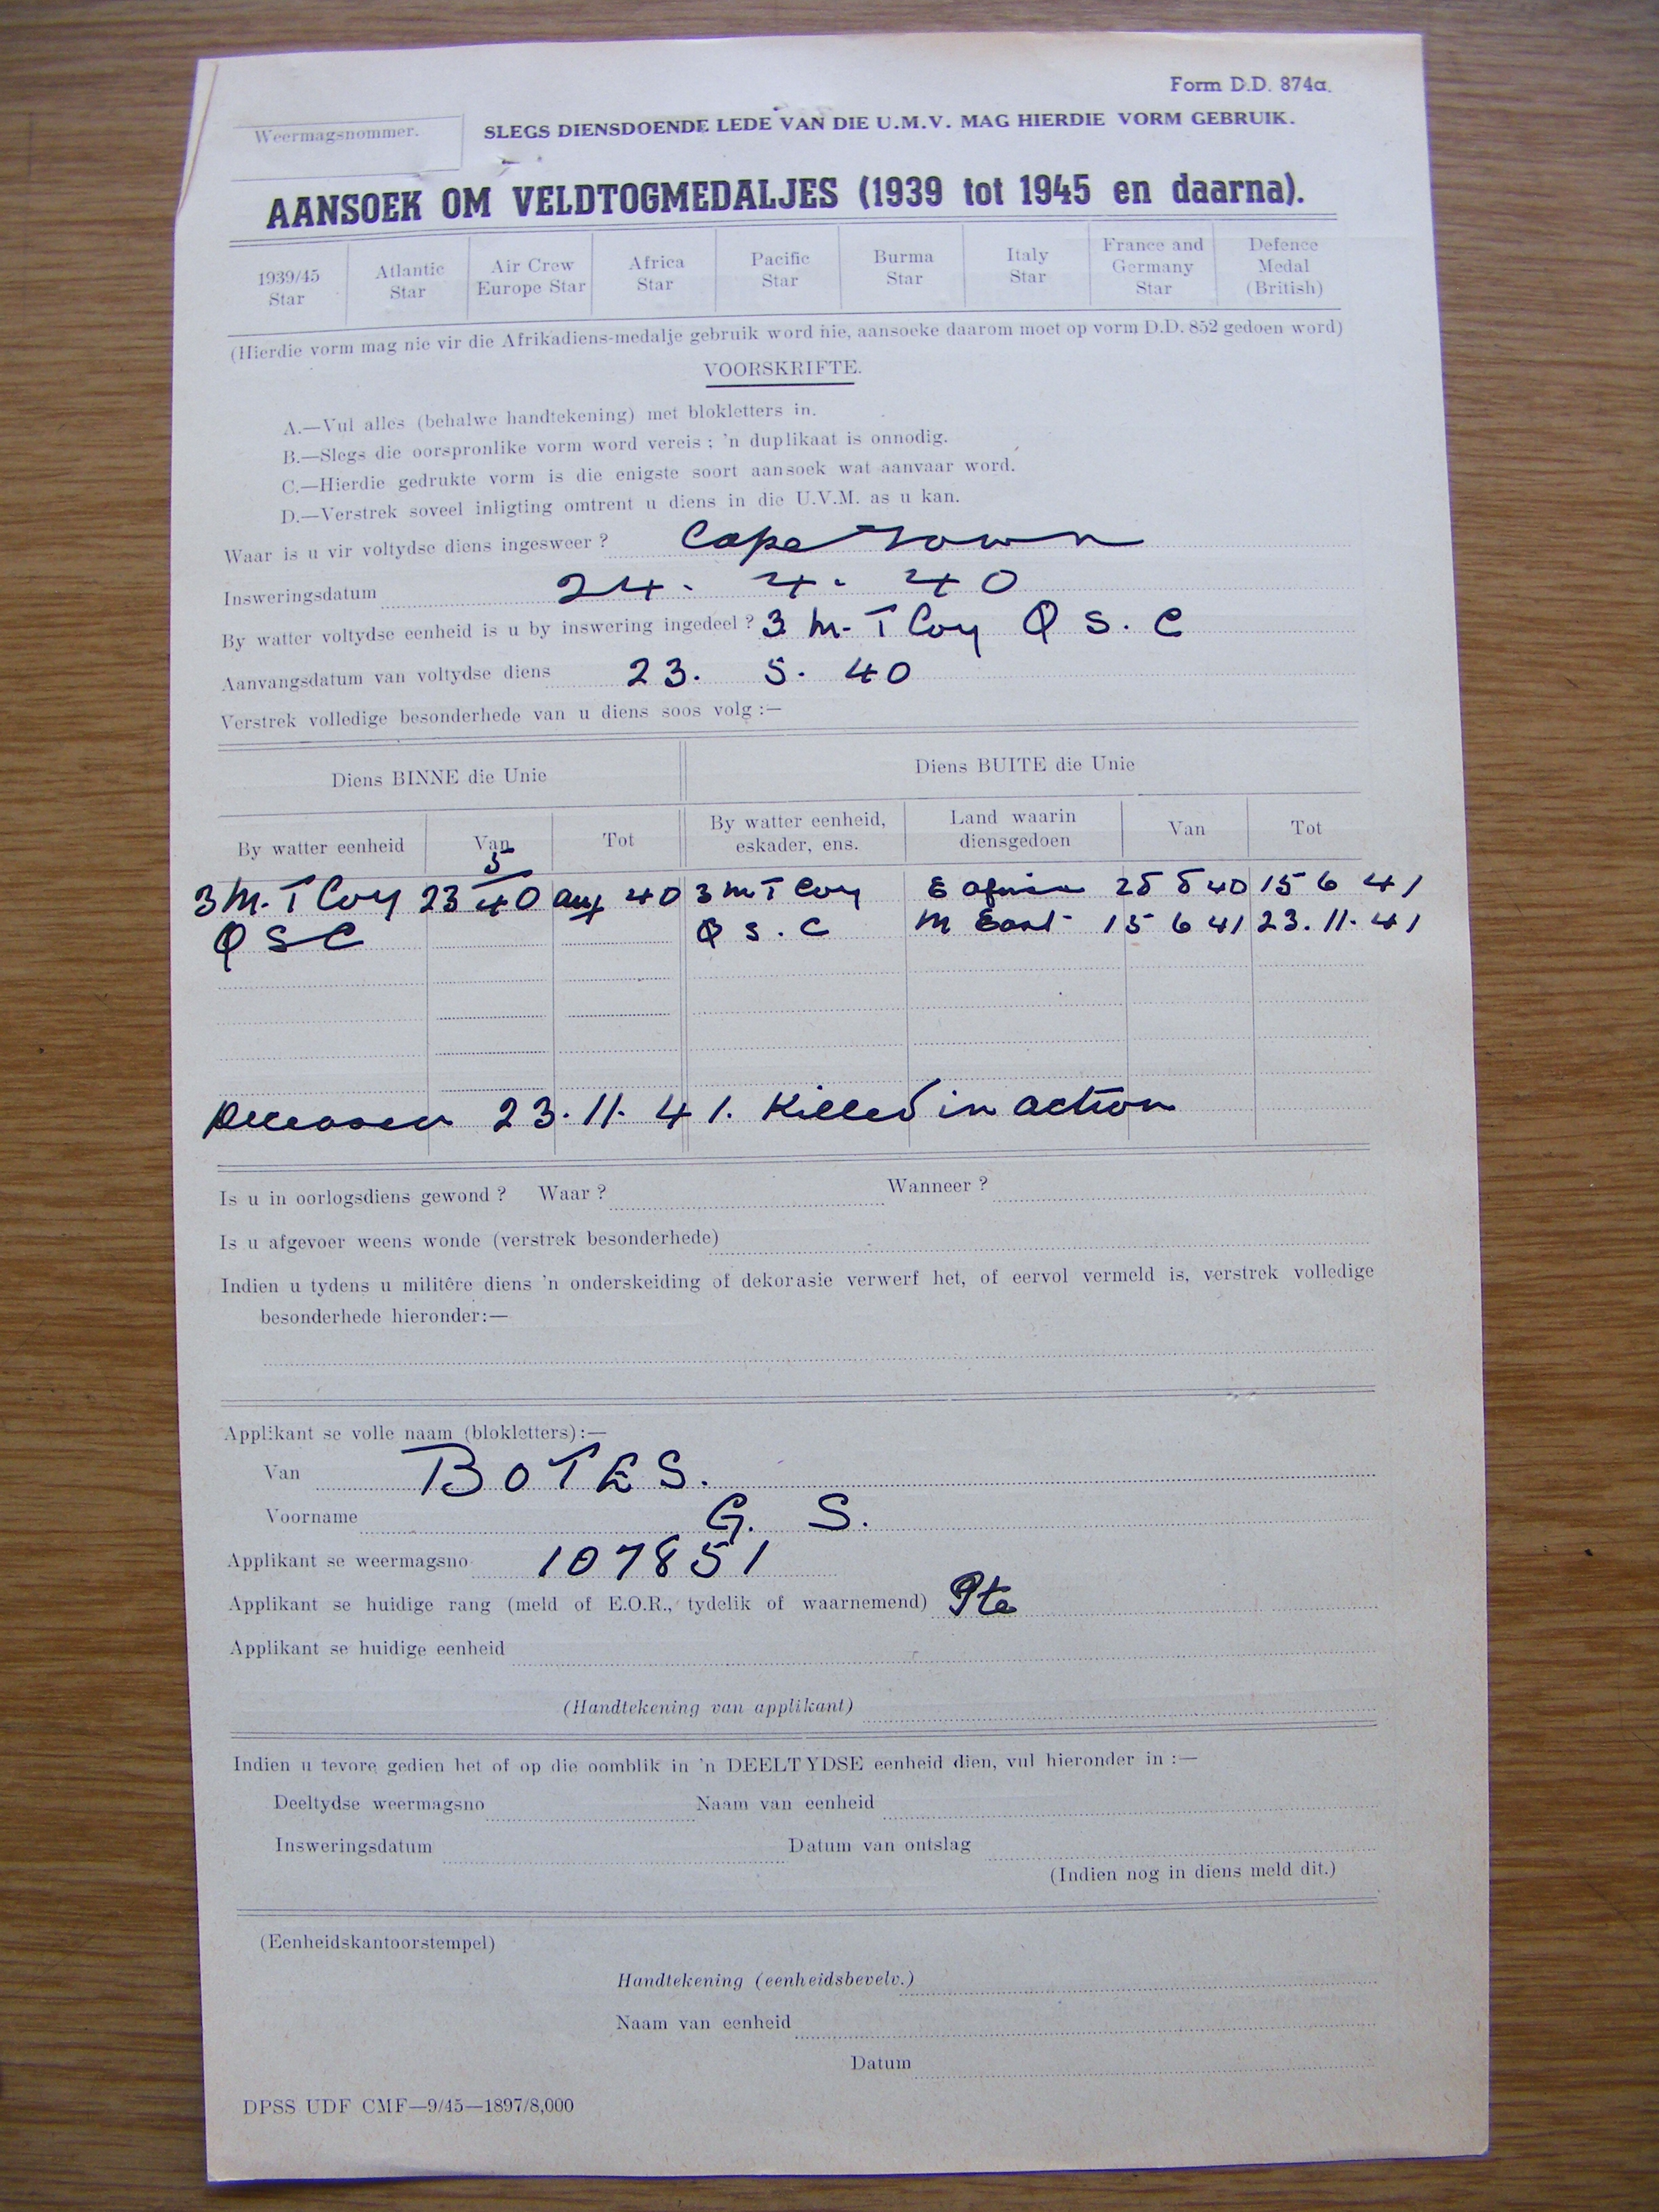 Form D.D. 874a.
Weermagsnommer.
SLEGS DIENSDOENDE LEDE VAN DIE U.M.V. MAG HIERDIE VORM GEBRUIK.
AANSOEK OM VELDTOGMEDALJES (1939 tot 1945 en daarna).
1939/45 Star
Atlantic Star
Air Crew Europe Star
Africa Star
Pacific Star
Burma Star
Italy Star
France and Germany Star
Defence Medal (British)
(Hierdie vorm mag nie vir die Afrikadiens-medalje gebruik word nie, aansoeke daarom moet op vorm D.D. 852 gedoen word)
VOORSKRIFTE.
A.—Vul alles (behalwe handtekening) met blokletters in.
B.—Slegs die oorspronlike vorm word vereis ; 'n duplikaat is onnodig.
C.—Hierdie gedrukte vorm is die enigste soort aansoek wat aanvaar word.
D.—Verstrek soveel inligting omtrent u diens in die U.V.M. as u kan.
Waar is u vir voltydse diens ingesweer ? Cape Town
Insweringsdatum 24. 4. 40
By watter voltydse eenheid is u by inswering ingedeel ? 3 M-T Coy Q S. C
Aanvangsdatum van voltydse diens 23. 5. 40
Verstrek volledige besonderhede van u diens soos volg :—
Diens BINNE die Unie
Diens BUITE die Unie
By watter eenheid
Van
Tot
By watter eenheid, eskader, ens.
Land waarin diensgedoen
Van
Tot
3 M-T Coy 23 5/40 Aug 40 3 M T Coy E Africa 40 15 6 41
Q S C Q S. C M East 15 6 41 23. 11. 41
Deceased 23. 11. 41. Killed in action
Is u in oorlogsdiens gewond ? Waar ? Wanneer ?
Is u afgevoer weens wonde (verstrek besonderhede)
Indien u tydens u militêre diens 'n onderskeiding of dekorasie verwerf het, of eervol vermeld is, verstrek volledige
besonderhede hieronder:—
Applikant se volle naam (blokletters):—
Van BOTES.
Voorname G. S.
Applikant se weermagsno 107851
Applikant se huidige rang (meld of E.O.R., tydelik of waarnemend) Pte
Applikant se huidige eenheid
(Handtekening van applikant)
Indien u tevore gedien het of op die oomblik in 'n DEELTYDSE eenheid dien, vul hieronder in :—
Deeltydse weermagsno Naam van eenheid
Insweringsdatum Datum van ontslag
(Indien nog in diens meld dit.)
(Eenheidskantoorstempel)
Handtekening (eenheidsbevelv.)
Naam van eenheid
Datum
DPSS UDF CMF—9/45—1897/8,000